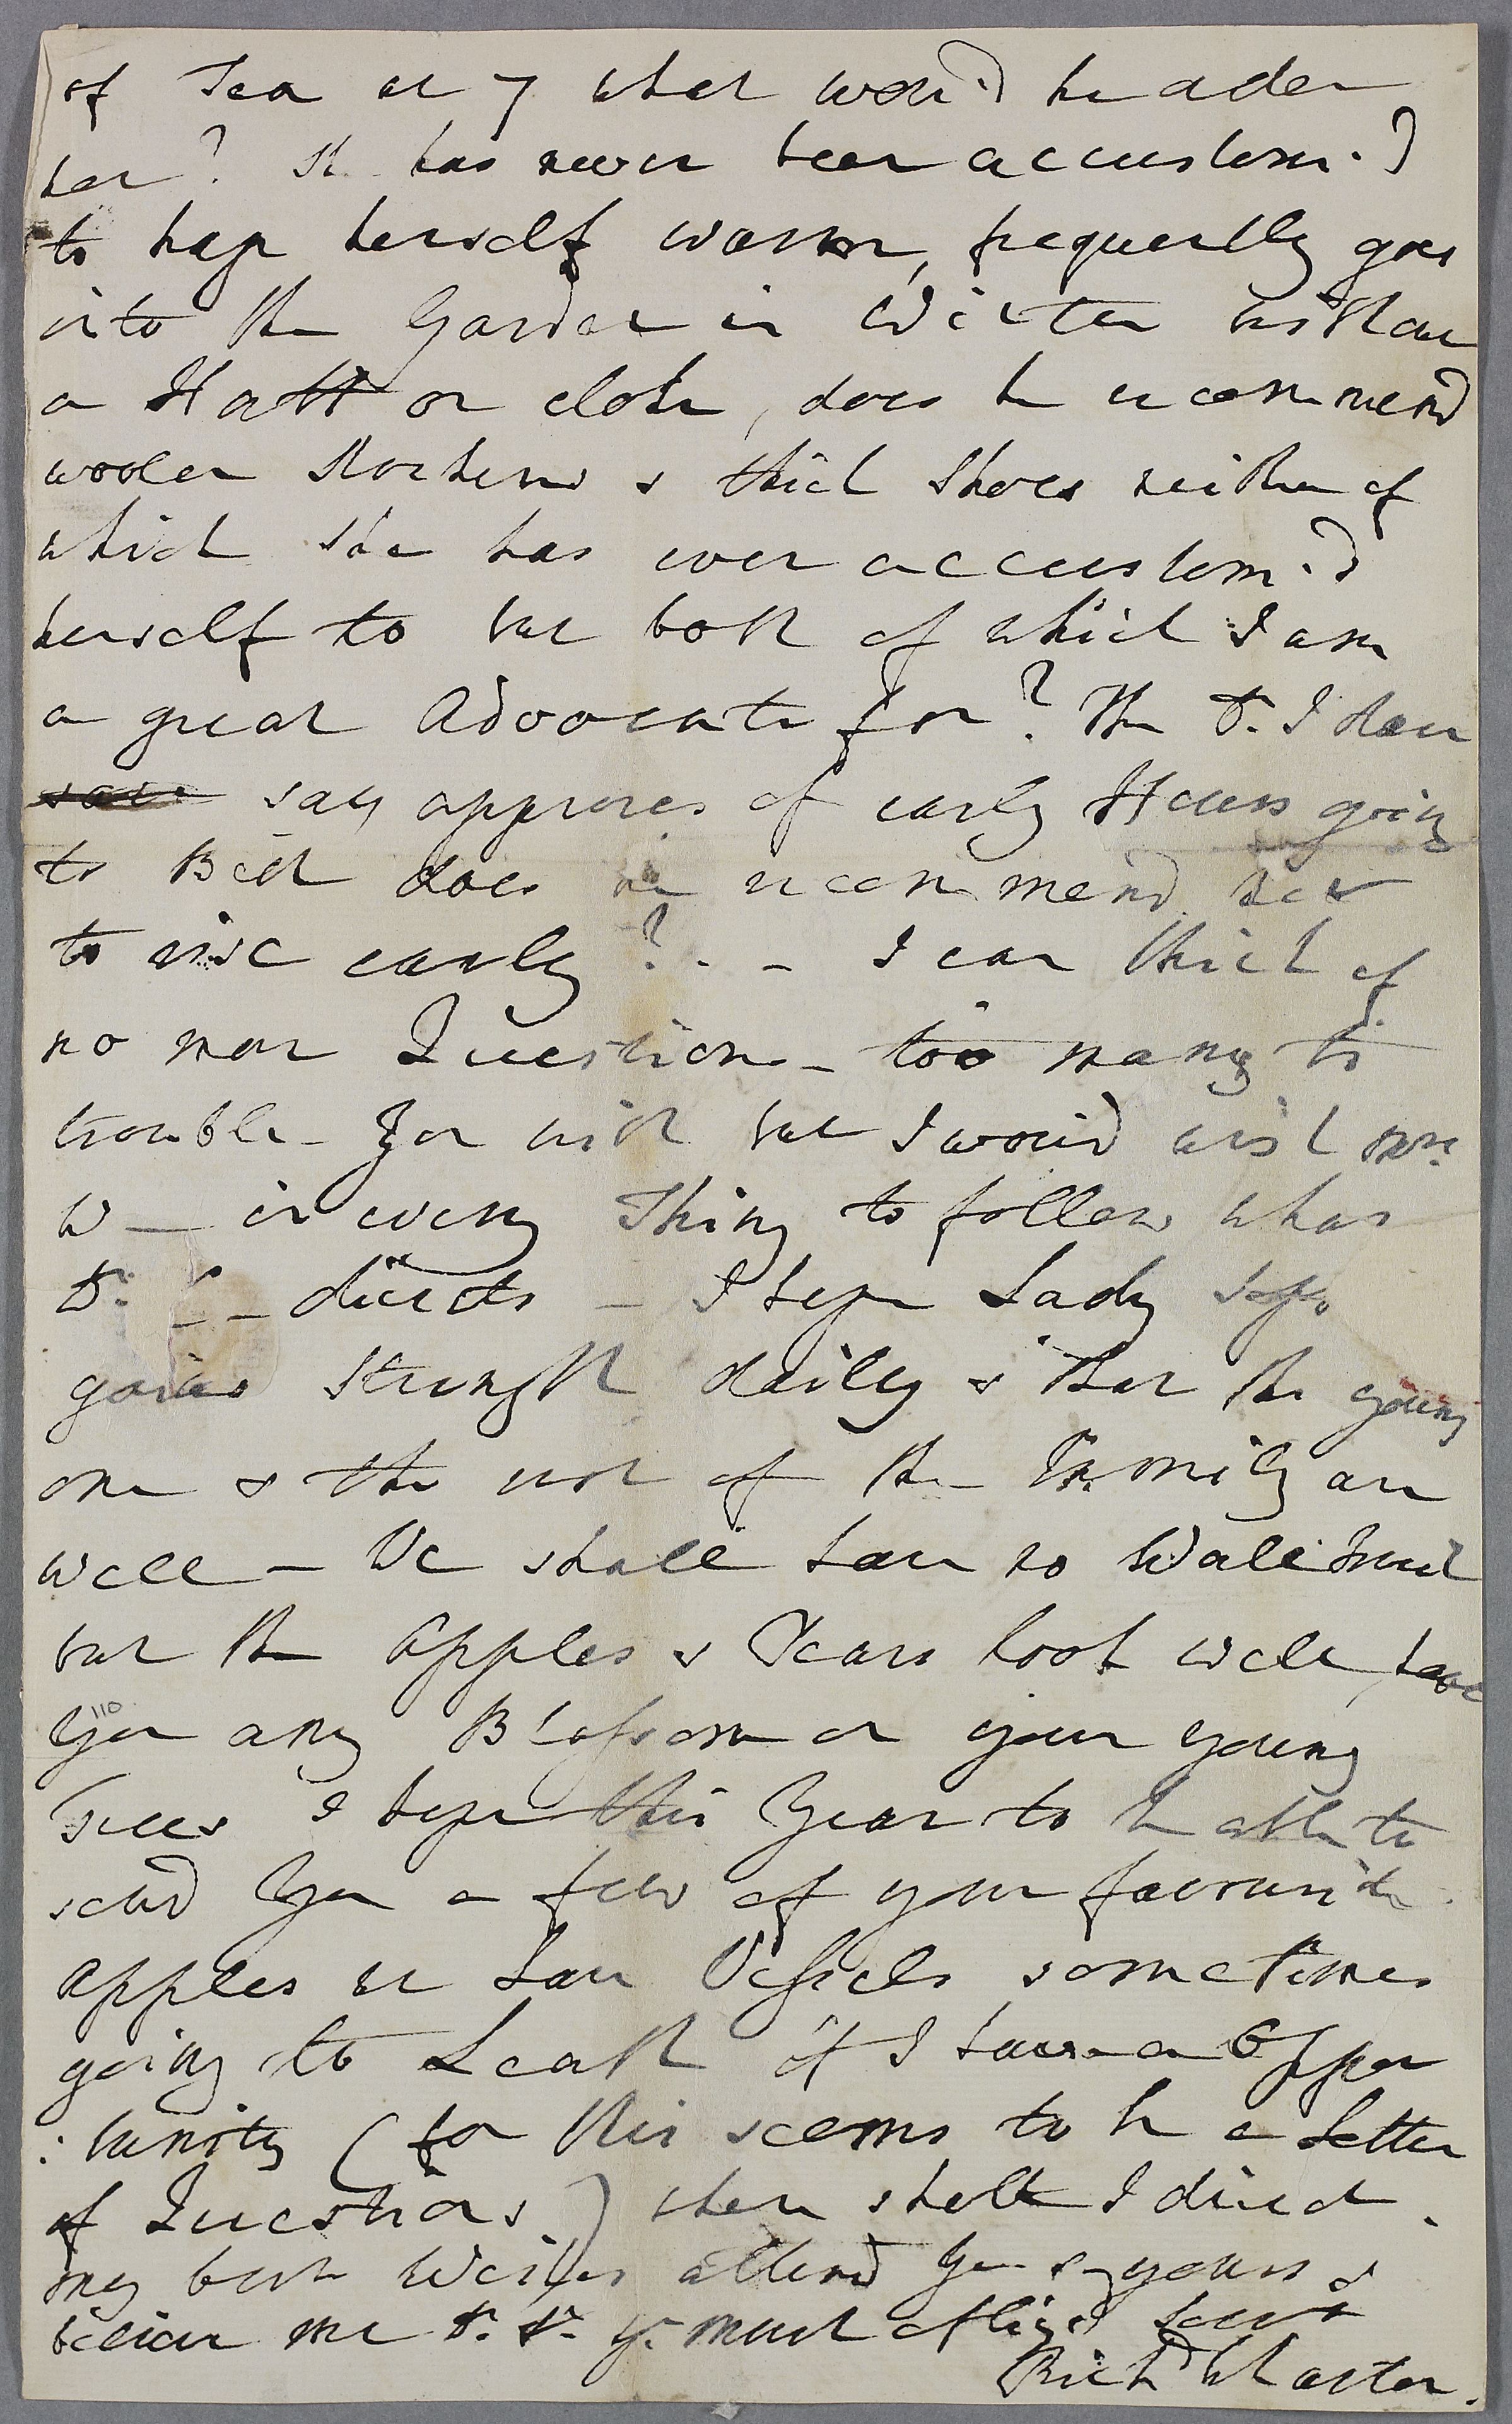 of Tea at 7 what wou'd he order
her? She has never been accustom'd
to keep herself warm, frequently goes
into the Garden in Winter without
a Hatt or cloke, does he recommend
woolen Stockens & thick Shoes neither of
which she has ever accustom'd
herself to but both of which I am
a great Advocate for? The Dr. I dare
say approves of early Hours going
to Bed does he recommend her
to rise early? - I can think of
no more Questions - too many to
trouble You with but I wou'd wish Mrs.
W - in every Thing to follow what
Dr. directs - I hope Lady
gains Strength daily & that the young
one & the rest of the Family are
well - We shall have no Wall Fruit
but the Apples & Pears look well, have
110
You any Blossom on your young
Trees I hope this Year to be able to
send You a few of your favourite
Apples we have Vessels sometimes
going to Leath if I have an Oppor
:tunity (for this seems to be a Letter
of Questions) where shall I direct.
my best Wishes attend You & yours &
believe me Dr. Sr. yr. much oblig'd Servt
Richd Wharton.